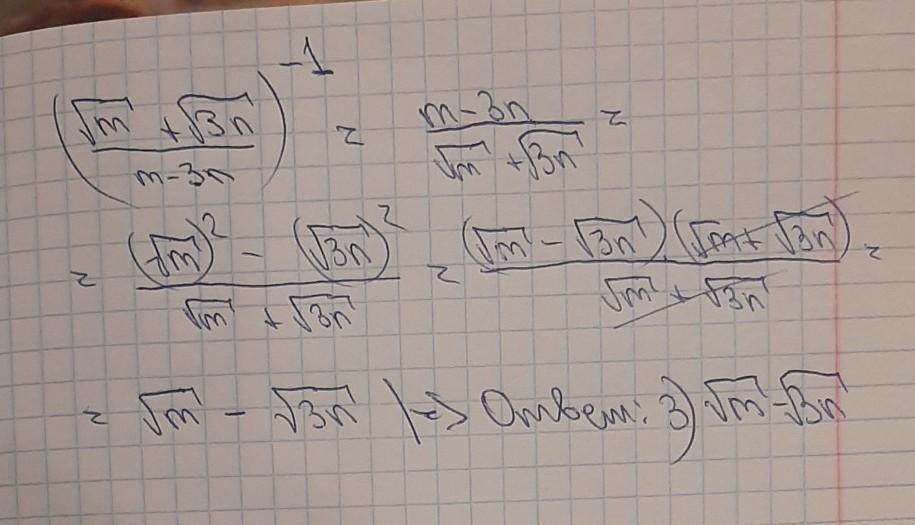 ((√m + √3n)/(m-3n))^-1 = (m-3n)/(√m + √3n) =
= ((√m)² - (√3n)²)/(√m + √3n) = ((√m - √3n)(√m + √3n))/(√m + √3n) =
= √m - √3n |=> Ответ: 3) √m - √3n